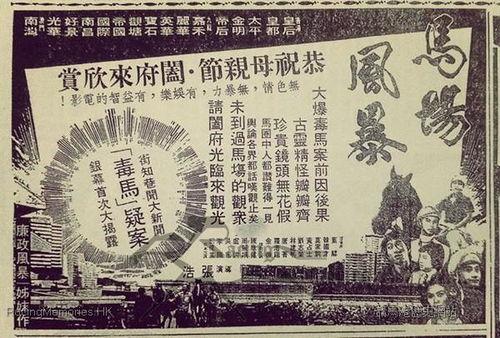 皇后
皇都
太平
金明
帝后
嘉禾
麗華
英華
寶石
觀塘
帝國
國際
南昌
好景
光華
南灣
馬場風暴
恭祝母親節·闔府來欣賞
無色情，無暴力，有娛樂，有益智的電影！
大爆毒馬案前因後果
古靈精怪瓣瓣齊
珍貴鏡頭無花假
馬圈中人都讚難得一見
輿論各界都話嘆觀止矣
未到過馬塲的觀衆
請闔府光臨來觀光
街知巷聞大新聞
「毒馬」疑案
銀幕首次大揭露
導演
張浩
廉政風暴 姊妹作